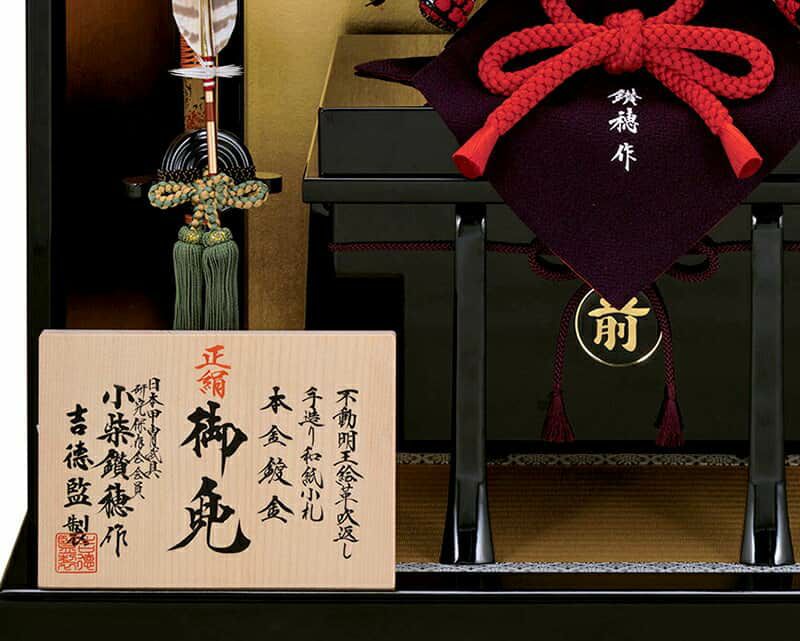 鑚穂作
前
不動明王絵革吹返し
手造り和紙小札
本金鍍金
正絹
御免
日本甲冑武具
研究保存会会員
小柴鑚穂作
吉徳監製